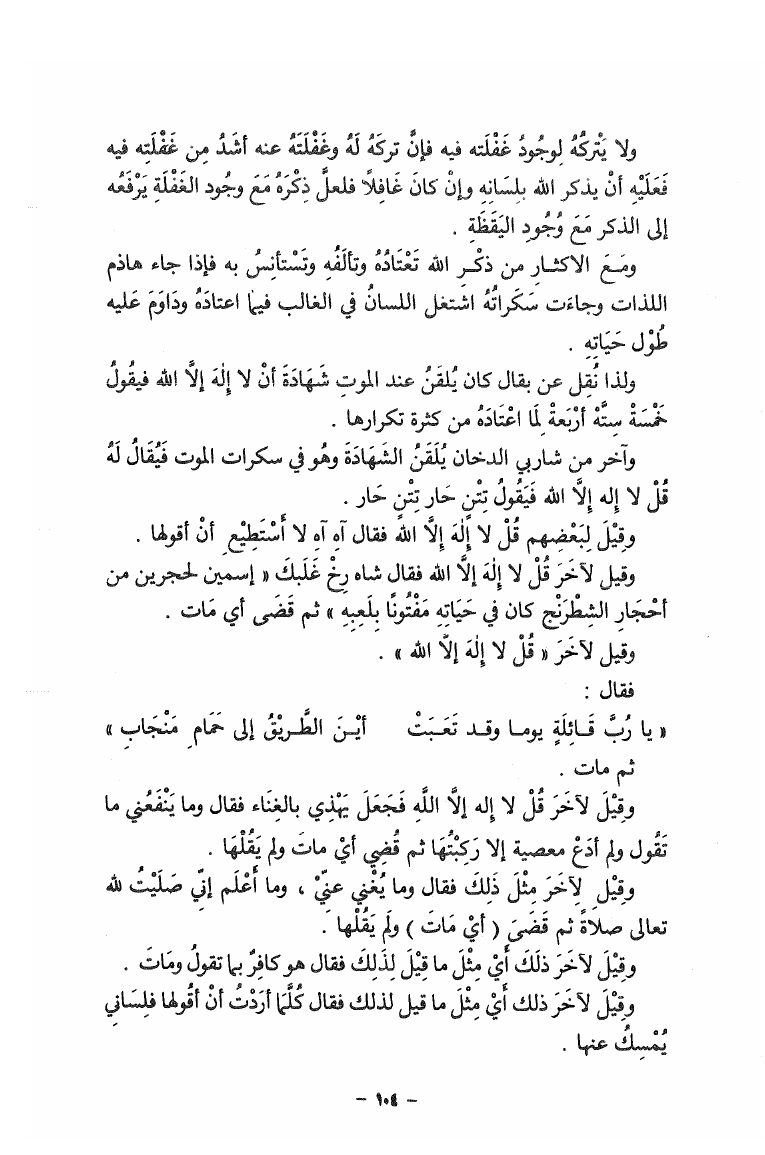 ولا يَتْركُهُ لِوجُودُ غَفْلَته فيه فإنَّ تركَهُ لَهُ وغَفْلَتَهُ عنه أشَدُ مِن غَفْلَتِه فيه
فَعَلَيْهِ أنْ يذكر الله بلسَانِهِ وإنْ كانَ غَافِلاً فلعلَّ ذِكْرَهُ مَعَ وجُود الغَفْلَةِ يَرْفَعُه
إلى الذكر مَعَ وُجُودِ اليَقَظَةِ .
ومَعَ الاكثار من ذكْرِ الله تَعْتَادُهُ وتألَفُهِ وتَسْتأنِسُ به فإذا جاء هاذم
اللذات وجاءَت سَكَراتُهُ اشتغل اللسانُ في الغالب فيما اعتادَهُ ودَاوَمَ عَليه
طُوْل حَيَاتِهِ .
ولذا نُقِل عن بقال كان يُلقَنُ عند الموتِ شَهَادَةَ أنْ لا إلٰهَ إلاَّ الله فيقُولُ
خَمْسَةْ سِتَّهْ أرْبَعةْ لِمَا اعْتَادَهُ من كثرة تكرارها .
وآخر من شاربي الدخان يُلَقَنُ الشَهَادَةَ وهُو في سكرات الموت فَيُقَالُ لَهُ
قُلْ لا إله إلاَّ الله فَيَقُولُ تِتْنٍ حَار تِتْنٍ حَار .
وقِيْلَ لِبَعْضِهم قُلْ لا إلٰهَ إلاَّ اللهُ فقال آهِ آهِ لا أَسْتَطِيْع أنْ أقولها .
وقيل لآخَرَ قُلْ لا إلٰهَ إلاَّ الله فقال شاه رِخْ غَلَبكَ « إسمين لحجرين من
أحْجَارِ الشِطْرَنْج كان في حَيَاتِهِ مَفْتُونًا بِلَعِبِهِ » ثم قَضَى أي مَات .
وقيل لآخَرَ « قُلْ لا إلٰهَ إلاَّ الله » .
فقال :
« يا رُبَّ قَائِلَةٍ يوما وقد تَعَبَتْ أيْنَ الطَّريْقُ إلى حَمَامِ مَنْجَابِ »
ثم مات .
وقِيْلَ لآخَرَ قُلْ لا إله إلاَّ اللَّه فَجَعَلَ يَهْذِي بالغِنَاء فقال وما يَنْفَعُني ما
تَقُول ولم أدَعْ معصية إلا رَكِبْتُهَا ثم قُضِي أيْ ماتَ ولم يَقُلْهَا .
وقِيْلَ لِآخَرَ مِثْلَ ذَلِكَ فقال وما يُغْني عنيّْ ، وما أَعْلَم إنيّ صَلَيْتُ لله
تعالى صلاةً ثم قَضَىَ ( أيْ مَاتَ ) ولَم يَقُلْها .
وقِيْلَ لآخَرَ ذلَكَ أيْ مِثْلَ ما قِيْلَ لِذَلِكَ فقال هو كافِرٌ بما تقولُ ومَاتَ .
وقِيْلَ لآخَرَ ذلك أيْ مِثْلَ ما قيل لذلك فقال كُلَّمَا أرَدْتُ أنْ أقولها فلِسَاني
يُمْسِكُ عنها .
– ١٠٤ –